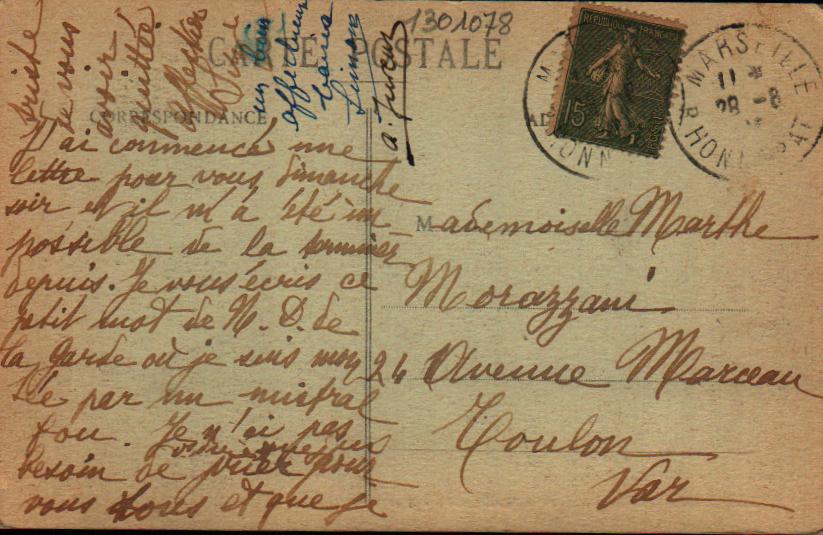 1301078
CARTE POSTALE
REPUBLIQUE FRANÇAISE
15
MARSEILLE
11
28 - 8
RHONE
CORRESPONDANCE
J'ai commencé une
lettre pour vous dimanche
soir et il m'a été im
possible de la terminer
depuis. Je vous écris ce
petit mot de N. D. de
la garde où je suis mon
tée par un mistral
fou. Je n'ai pas
besoin de
prier pour
vous tous et que je
triste
de vous
avoir
quittée
un bien
affectueux
Mademoiselle Marthe
Morazzani
24 Avenue Marceau
Toulon
Var